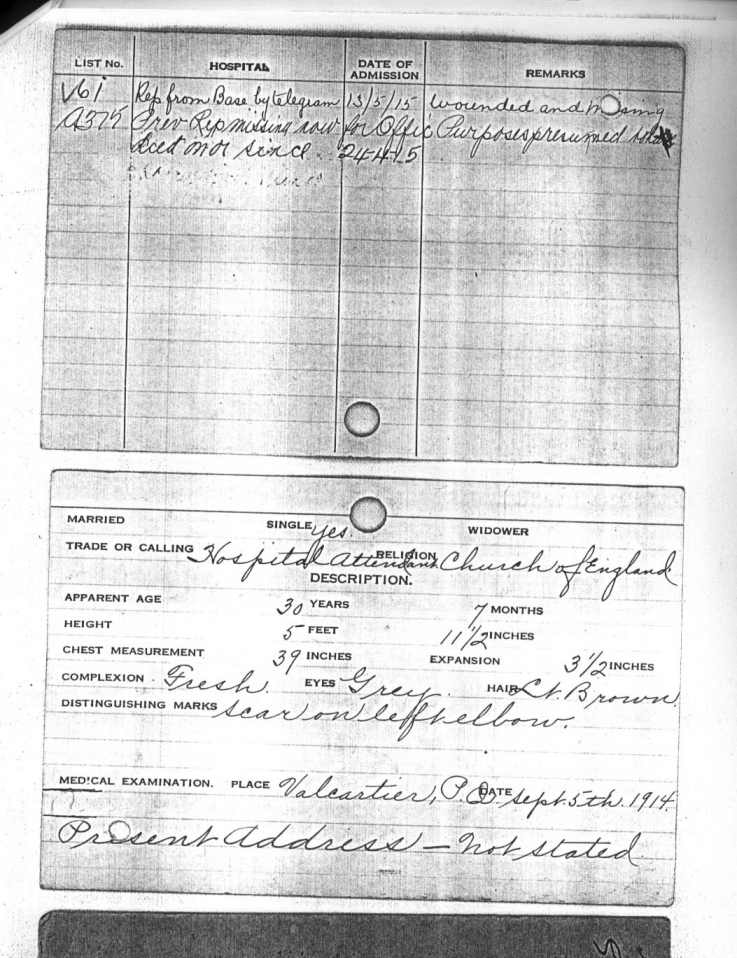 LIST No. HOSPITAL DATE OF ADMISSION REMARKS
V61 Rep from Base by telegram 13/5/15 wounded and missing
A375 Prev Rep missing now for Offic Purposes presumed to have
died on or since 24-4-15
MARRIED SINGLE yes. WIDOWER
TRADE OR CALLING Hospital Attendant RELIGION Church of England
DESCRIPTION.
APPARENT AGE 30 YEARS 7 MONTHS
HEIGHT 5 FEET 11 1/2 INCHES
CHEST MEASUREMENT 39 INCHES EXPANSION 3 1/2 INCHES
COMPLEXION Fresh. EYES Grey. HAIR Lt. Brown.
DISTINGUISHING MARKS scar on left elbow.
MEDICAL EXAMINATION. PLACE Valcartier, P.Q. DATE Sept. 5th. 1914.
Present Address — not stated